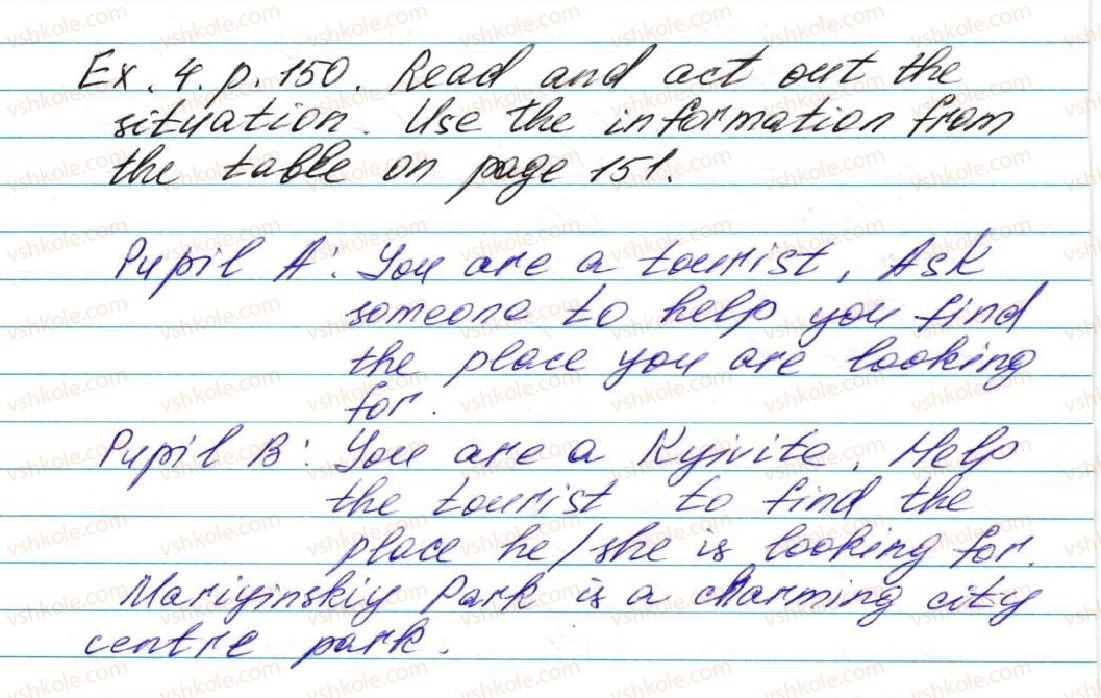 Ex. 4. p. 150. Read and act out the
situation. Use the information from
the table on page 151.
Pupil A: You are a tourist. Ask
someone to help you find
the place you are looking
for.
Pupil B: You are a Kyivite. Help
the tourist to find the
place he/she is looking for.
Mariyinskiy Park is a charming city
centre park.